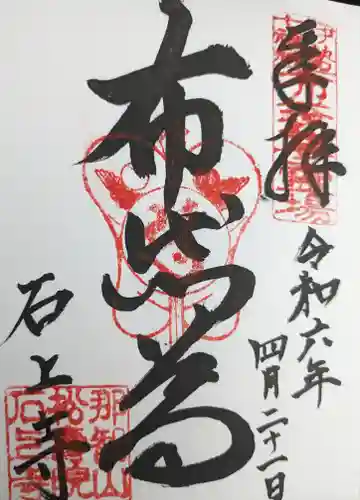 奉拝
令和六年
四月二十一日
布袋尊
石上寺
那智山
石上寺